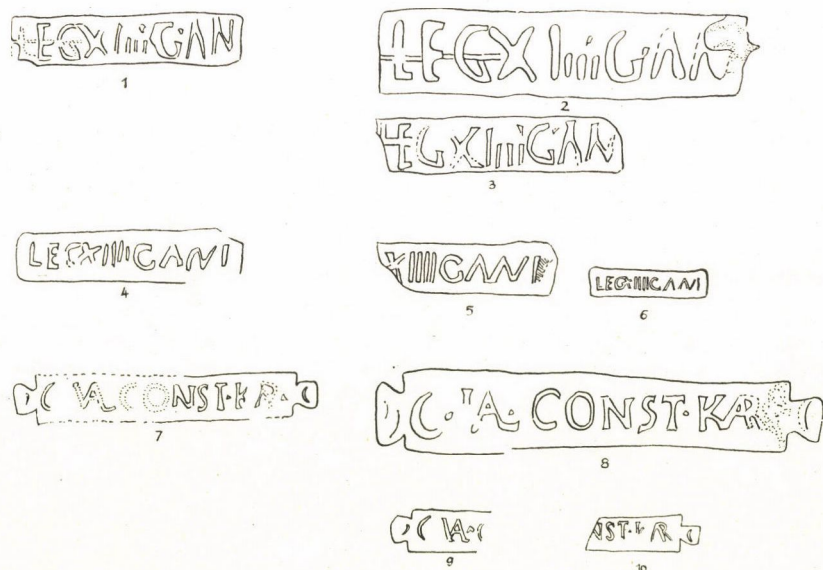 LEGXIIIIGAN
1
LEGXIIIIGAN
2
LEGXIIIIGAN
3
LEGXIIIIGANI
4
XIIIIGANI
5
LEGXIIIIGANI
6
C VAL CONST·KAR·
7
C·VA·CONST·KAR
8
C VA·C
9
NST·KAR
10